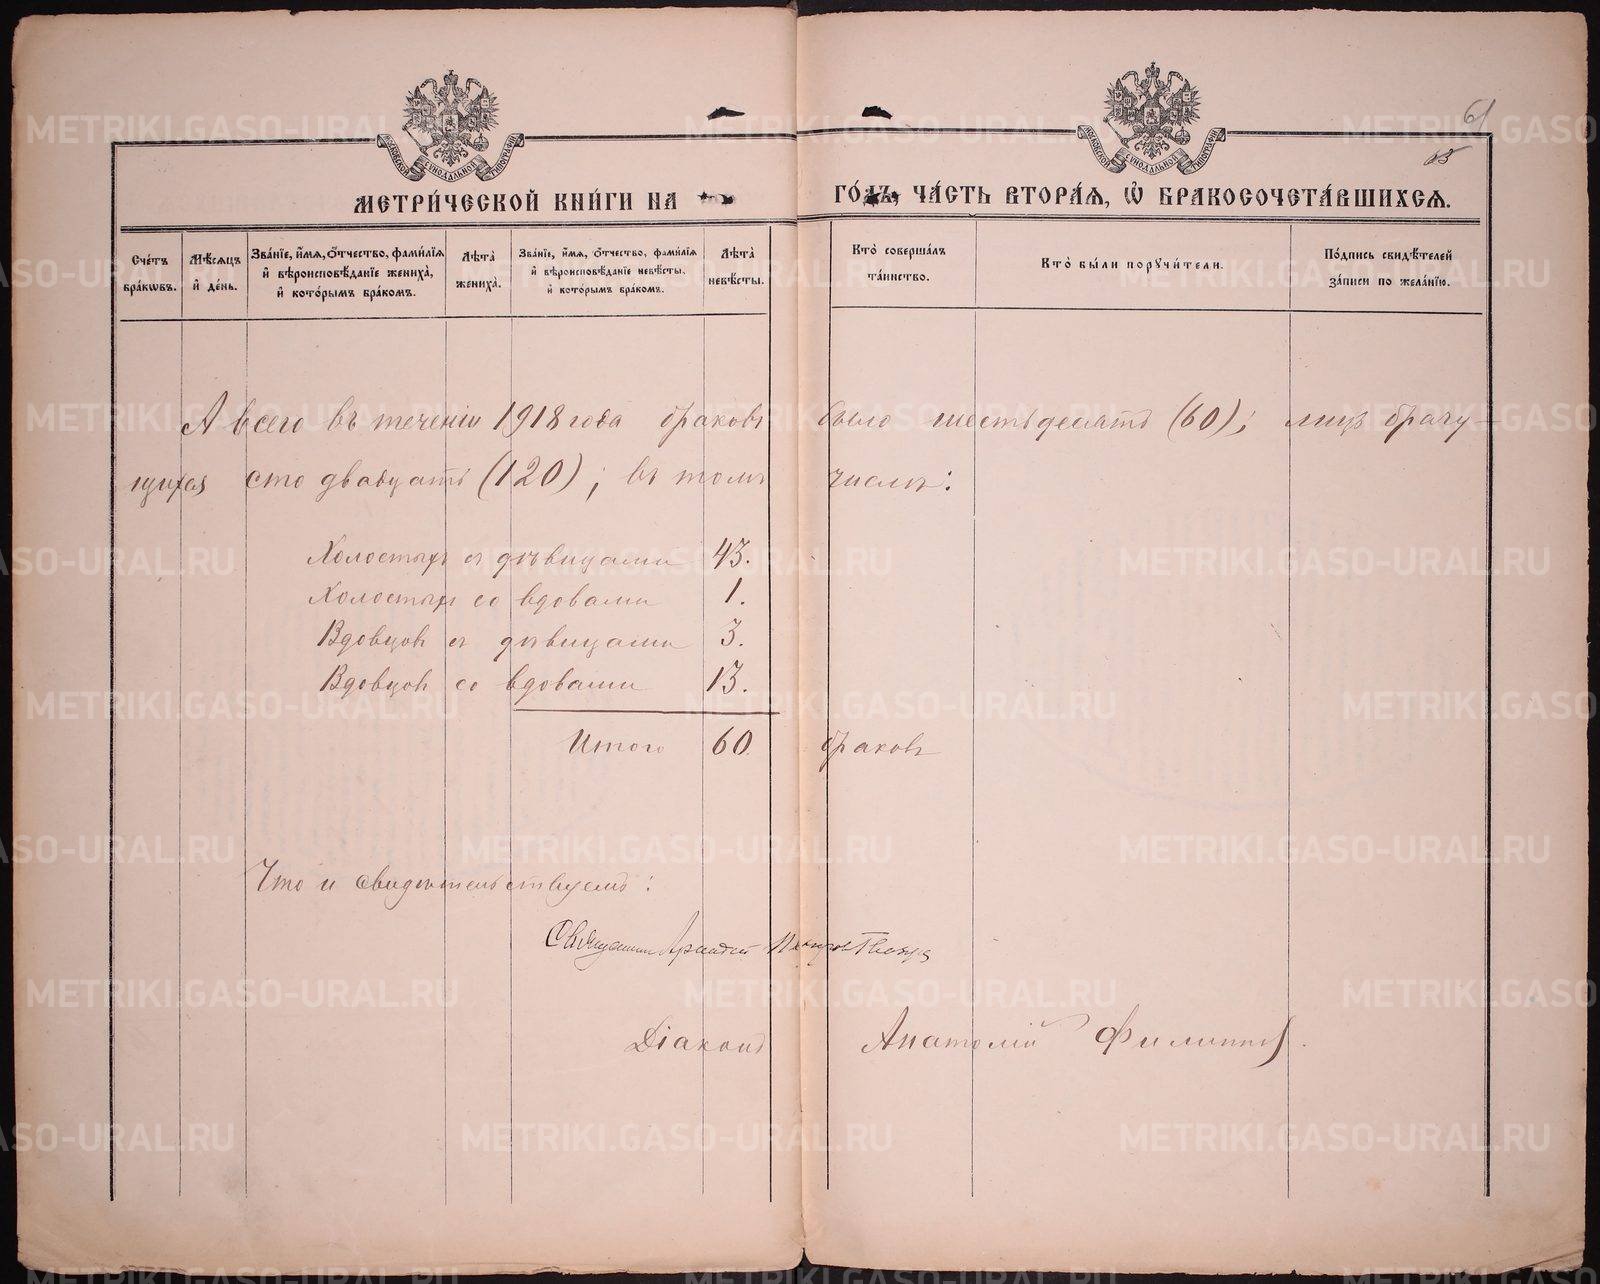 61
МОСКОВСКОЙ СИНОДАЛЬНОЙ ТИПОГРАФІИ
МОСКОВСКОЙ СИНОДАЛЬНОЙ ТИПОГРАФІИ
МЕТРИ́ЧЕСКОЙ КНИ́ГИ НА ГО́ДЪ, ЧА́СТЬ ВТОРА́Я, Ѽ БРАКОСОЧЕТА́ВШИХСЯ.
Сче́тъ бра́кѡвъ.
Мѣ́сяцъ и҆ де́нь.
Зва́нїе, и҆́мя, ѻ҆́тчество, фами́лїя и҆ вѣроисповѣ́данїе жениха̀, и҆ кото́рымъ бра́комъ.
Лѣ́та жениха̀.
Зва́нїе, и҆́мя, ѻ҆́тчество, фами́лїя и҆ вѣроисповѣ́данїе невѣ́сты. и҆ кото́рымъ бра́комъ.
Лѣ́та невѣ́сты.
Кто̀ соверша́лъ та́инство.
Кто̀ бы́ли порꙋчи́тели.
По́дпись свидѣ́телей за́писи по жела́нїю.
А всего въ теченіи 1918 года браковъ было шестьдесятъ (60); лицъ брачу-
щихся сто двадцать (120); въ томъ числѣ:
Холостыхъ съ дѣвицами 43.
Холостыхъ со вдовами 1.
Вдовцовъ съ дѣвицами 3.
Вдовцовъ со вдовами 13.
Итого 60. браковъ
Что и свидѣтельствуемъ:
Священникъ Аркадій
Діаконъ Анатолій Филиппов.
METRIKI.GASO-URAL.RU